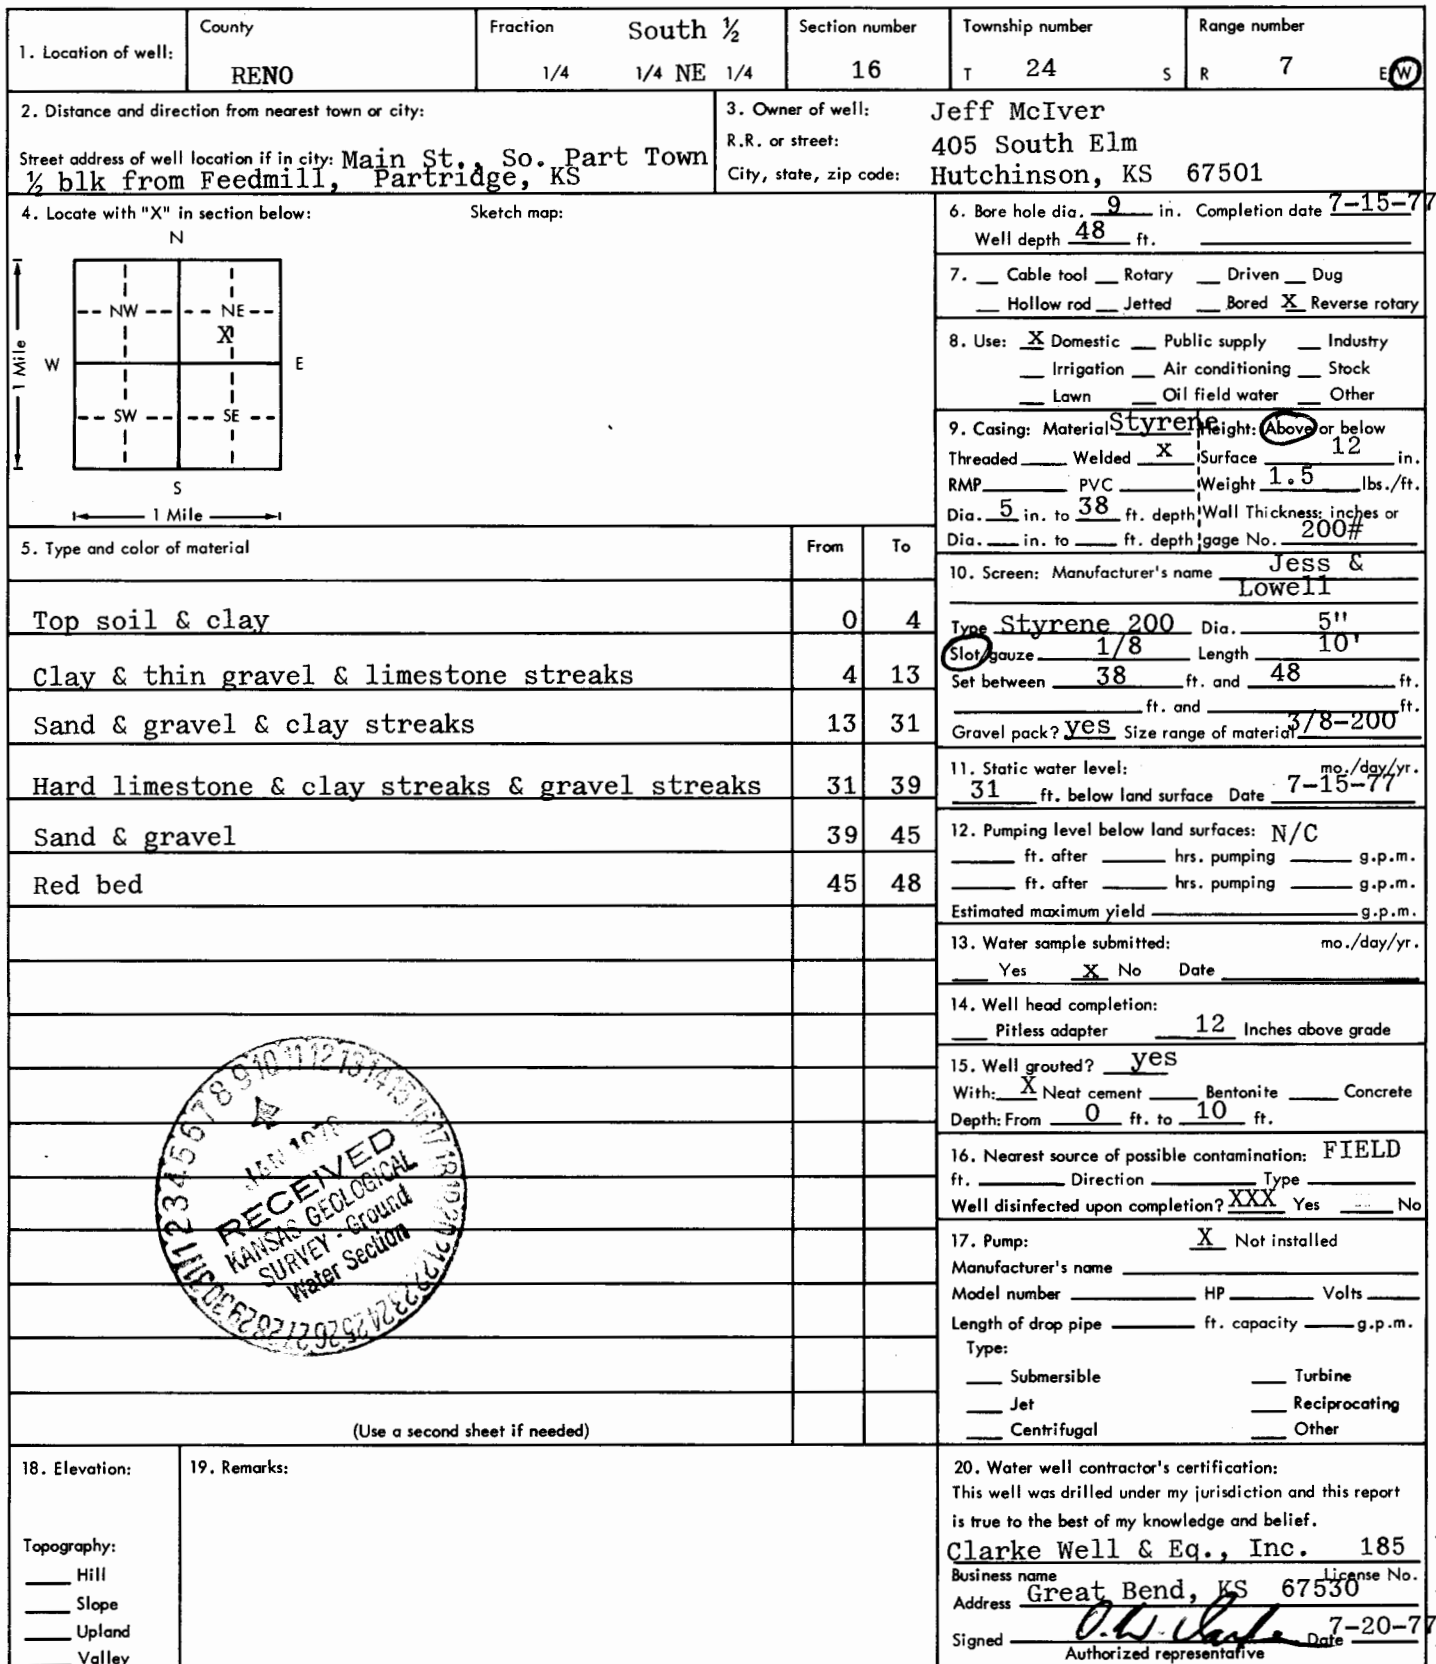 1. Location of well: County RENO Fraction South ½ 1/4 1/4 NE 1/4 Section number 16 Township number T 24 S Range number R 7 E/W
2. Distance and direction from nearest town or city:
Street address of well location if in city: Main St., So. Part Town
½ blk from Feedmill, Partridge, KS
3. Owner of well: Jeff McIver
R.R. or street: 405 South Elm
City, state, zip code: Hutchinson, KS 67501
4. Locate with "X" in section below: Sketch map:
N
NW NE
X
W E
SW SE
S
1 Mile
1 Mile
5. Type and color of material From To
Top soil & clay 0 4
Clay & thin gravel & limestone streaks 4 13
Sand & gravel & clay streaks 13 31
Hard limestone & clay streaks & gravel streaks 31 39
Sand & gravel 39 45
Red bed 45 48
(Use a second sheet if needed)
1 2 3 4 5 6 7 8 9 10 11 12 13 14 15 16 17 18 19 20 21 22 23 24 25 26 27 28 29 30 31
RECEIVED
KANSAS GEOLOGICAL
SURVEY - Ground
Water Section
6. Bore hole dia. 9 in. Completion date 7-15-77
Well depth 48 ft.
7. Cable tool Rotary Driven Dug
Hollow rod Jetted Bored X Reverse rotary
8. Use: X Domestic Public supply Industry
Irrigation Air conditioning Stock
Lawn Oil field water Other
9. Casing: Material Styrene Height: Above or below
Threaded Welded X Surface 12 in.
RMP PVC Weight 1.5 lbs./ft.
Dia. 5 in. to 38 ft. depth Wall Thickness: inches or
Dia. in. to ft. depth gage No. 200#
10. Screen: Manufacturer's name Jess &
Lowell
Type Styrene 200 Dia. 5"
Slot/gauze 1/8 Length 10'
Set between 38 ft. and 48 ft.
ft. and ft.
Gravel pack? yes Size range of material 3/8-200
11. Static water level: mo./day/yr.
31 ft. below land surface Date 7-15-77
12. Pumping level below land surfaces: N/C
ft. after hrs. pumping g.p.m.
ft. after hrs. pumping g.p.m.
Estimated maximum yield g.p.m.
13. Water sample submitted: mo./day/yr.
Yes X No Date
14. Well head completion:
Pitless adapter 12 Inches above grade
15. Well grouted? yes
With: X Neat cement Bentonite Concrete
Depth: From 0 ft. to 10 ft.
16. Nearest source of possible contamination: FIELD
ft. Direction Type
Well disinfected upon completion? XXX Yes No
17. Pump: X Not installed
Manufacturer's name
Model number HP Volts
Length of drop pipe ft. capacity g.p.m.
Type:
Submersible Turbine
Jet Reciprocating
Centrifugal Other
18. Elevation:
Topography:
Hill
Slope
Upland
Valley
19. Remarks:
20. Water well contractor's certification:
This well was drilled under my jurisdiction and this report
is true to the best of my knowledge and belief.
Clarke Well & Eq., Inc. 185
Business name License No.
Address Great Bend, KS 67530
Signed Date 7-20-77
Authorized representative